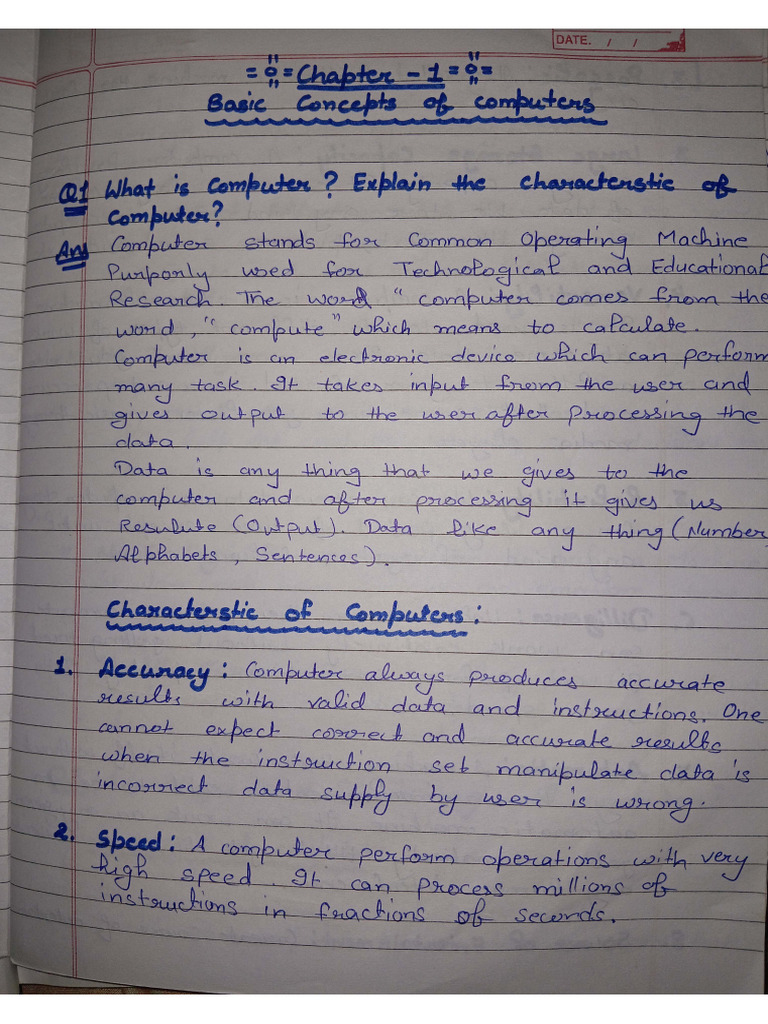 DATE. / /
Chapter - 1
Basic Concepts of computers
Q1 What is Computer? Explain the characterstic of
Computer?
Ans Computer stands for Common Operating Machine
Purponly used for Technological and Educational
Research. The word " computer comes from the
word, " compute" which means to calculate.
Computer is an electronic device which can perform
many task. It takes input from the user and
gives output to the user after processing the
data.
Data is any thing that we gives to the
computer and after processing it gives us
Resulute (Output). Data like any thing (Number,
Alphabets, Sentences).
Characterstic of Computers:
1. Accuracy: Computer always produces accurate
results with valid data and instructions. One
cannot expect correct and accurate results
when the instruction set manipulate data is
incorrect data supply by user is wrong.
2. Speed: A computer perform operations with very
high speed. It can process millions of
instructions in fractions of seconds.